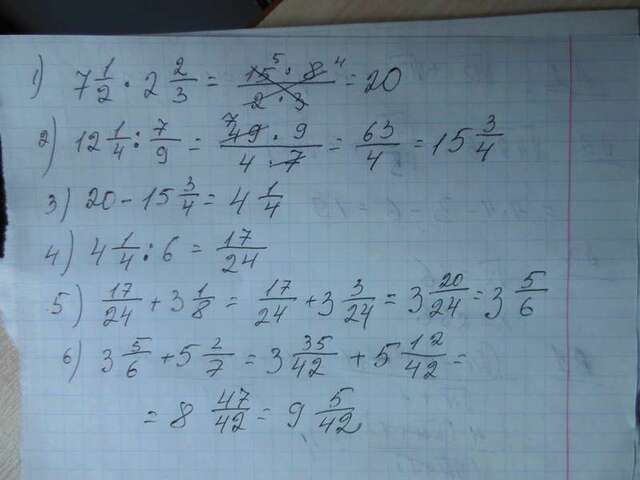 1) 7 1/2 · 2 2/3 = 15 5 · 8 4 / 2 · 3 = 20
2) 12 1/4 : 7/9 = 7 49 · 9 / 4 · 7 = 63/4 = 15 3/4
3) 20 - 15 3/4 = 4 1/4
4) 4 1/4 : 6 = 17/24
5) 17/24 + 3 1/8 = 17/24 + 3 3/24 = 3 20/24 = 3 5/6
6) 3 5/6 + 5 2/7 = 3 35/42 + 5 12/42 =
= 8 47/42 = 9 5/42